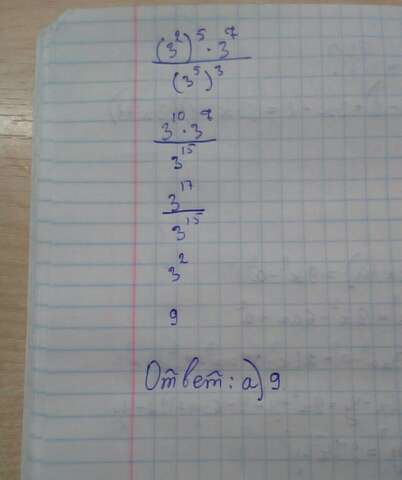 (3²)⁵ · 3⁷
(3⁵)³
3¹⁰ · 3⁷
3¹⁵
3¹⁷
3¹⁵
3²
9
Ответ: а) 9